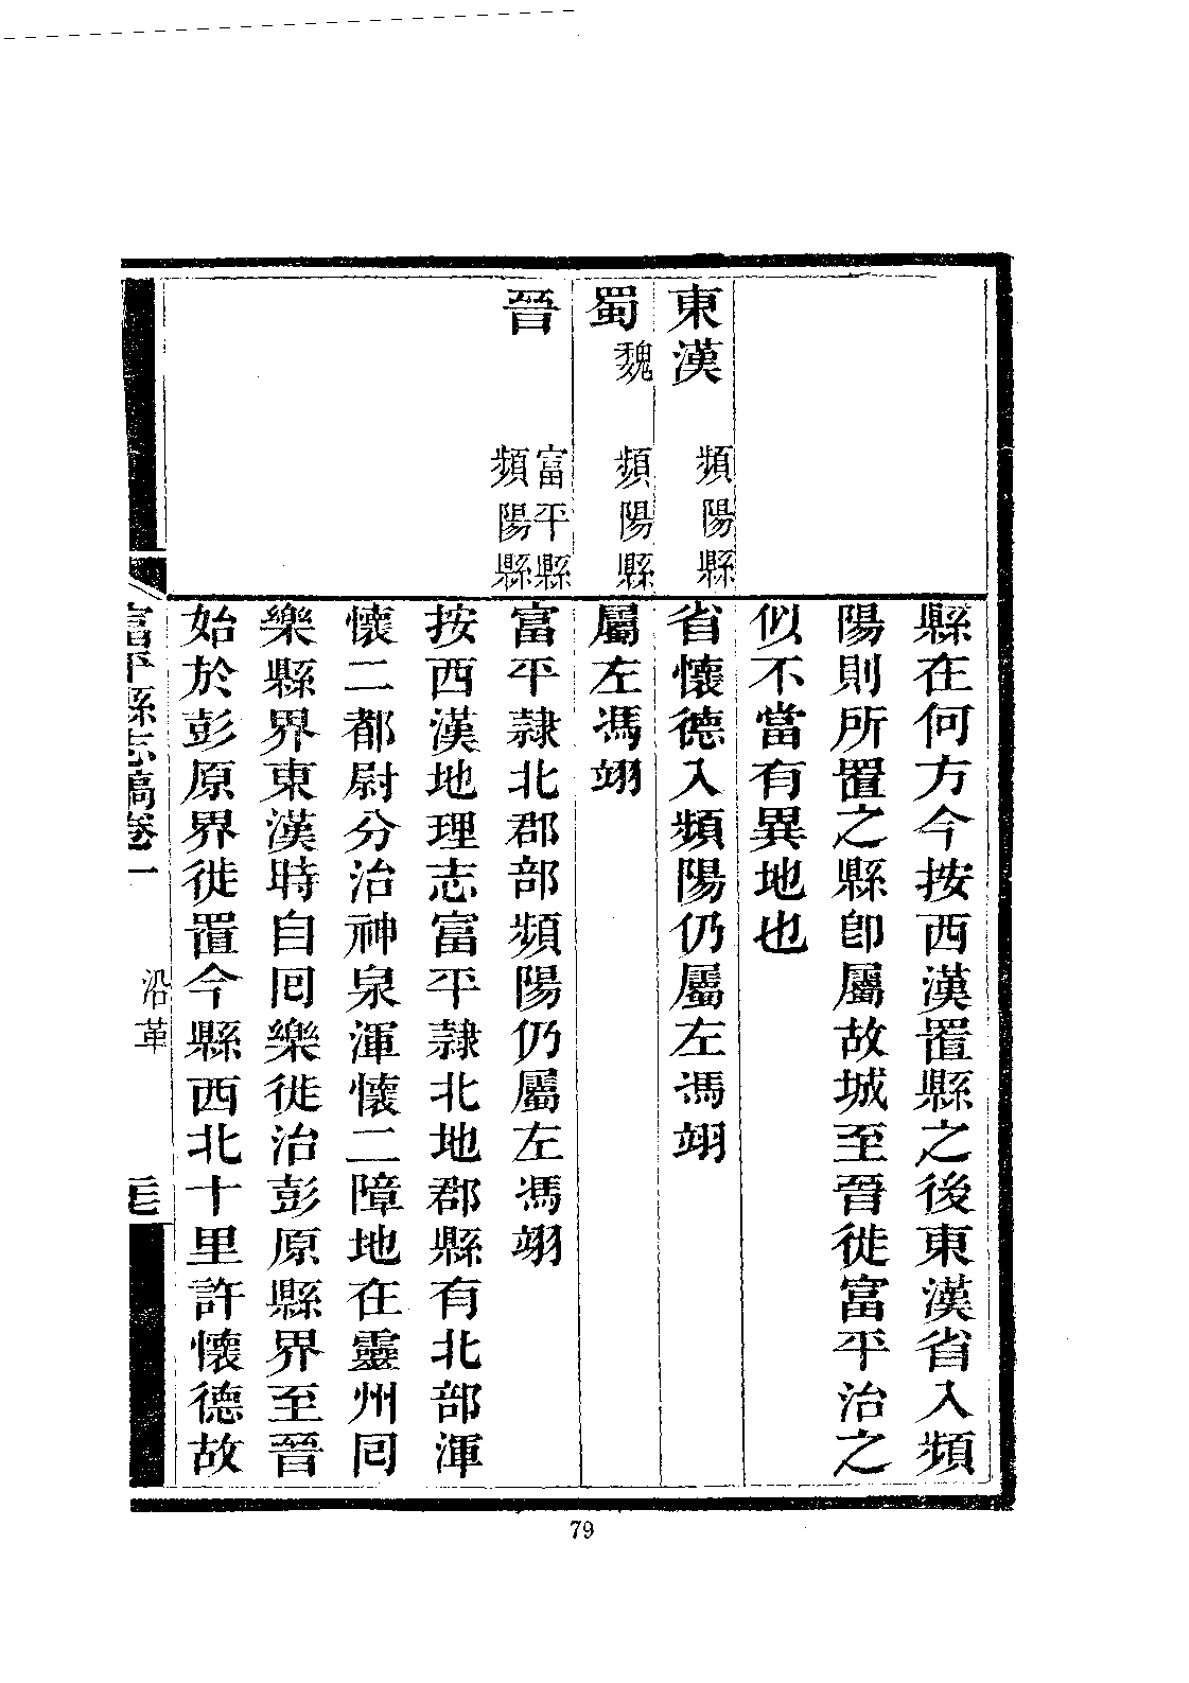 縣在何方今按西漢置縣之後東漢省入頻
陽則所置之縣卽屬故城至晉徙富平治之
似不當有異地也
東漢 頻陽縣
省懷德入頻陽仍屬左馮翊
蜀魏 頻陽縣
屬左馮翊
晉 富平縣
頻陽縣
富平隸北郡部頻陽仍屬左馮翊
按西漢地理志富平隸北地郡縣有北部渾
懷二都尉分治神泉渾懷二障地在靈州囘
樂縣界東漢時自囘樂徙治彭原縣界至晉
始於彭原界徙置今縣西北十里許懷德故
富平縣志稿卷一 沿革
79